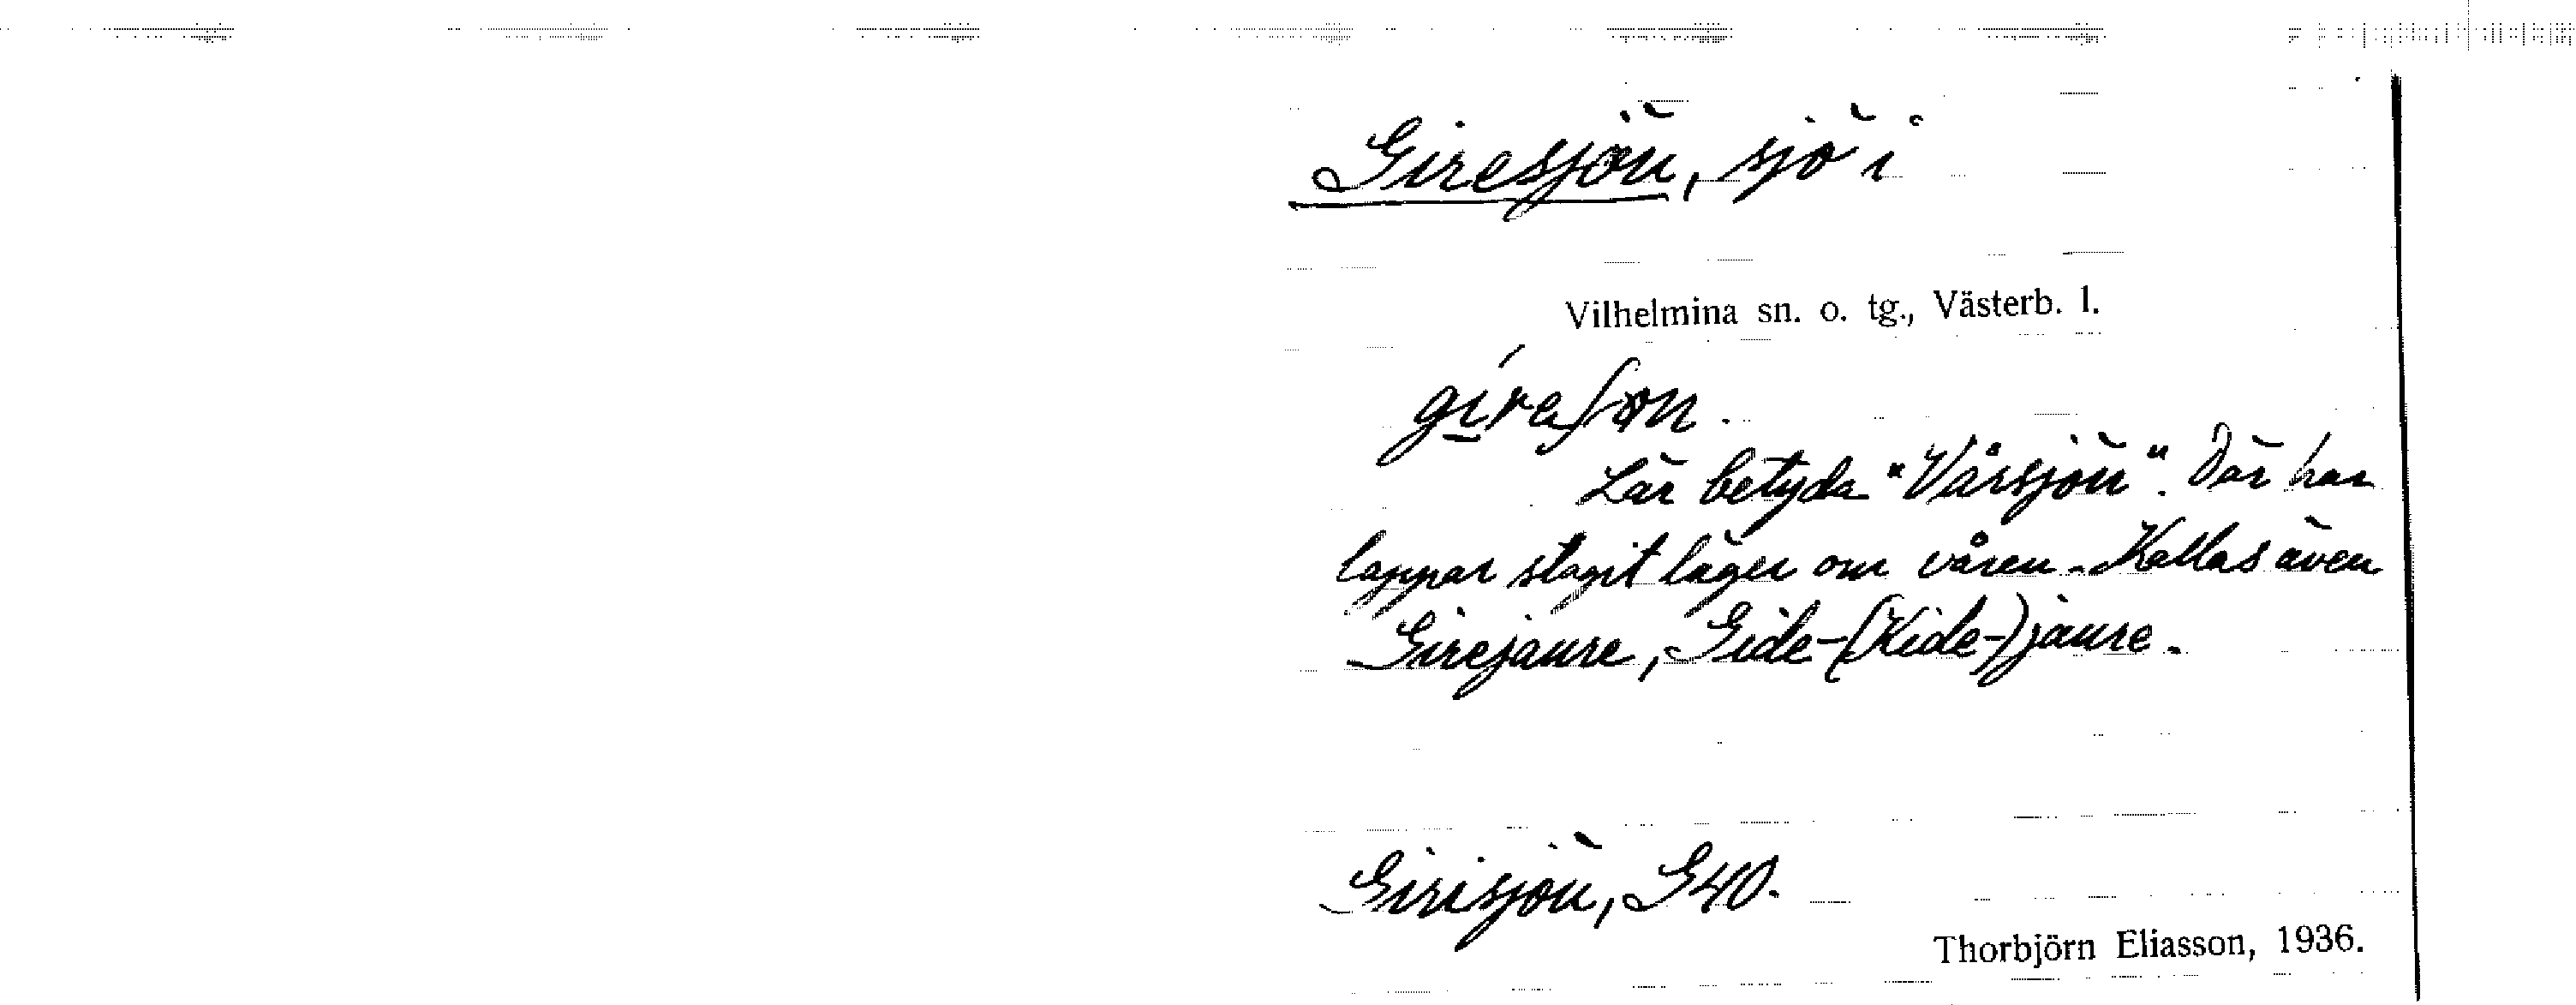 Giresjön, sjö i
Vilhelmina sn. o. tg., Västerb. l.
Lär betyda "Vårsjön". Där har
lappar slagit läger om våren. Kallas även
Girejaure, Gide-(Kide-)jaure.
Girisjön, G40.
Thorbjörn Eliasson, 1936.